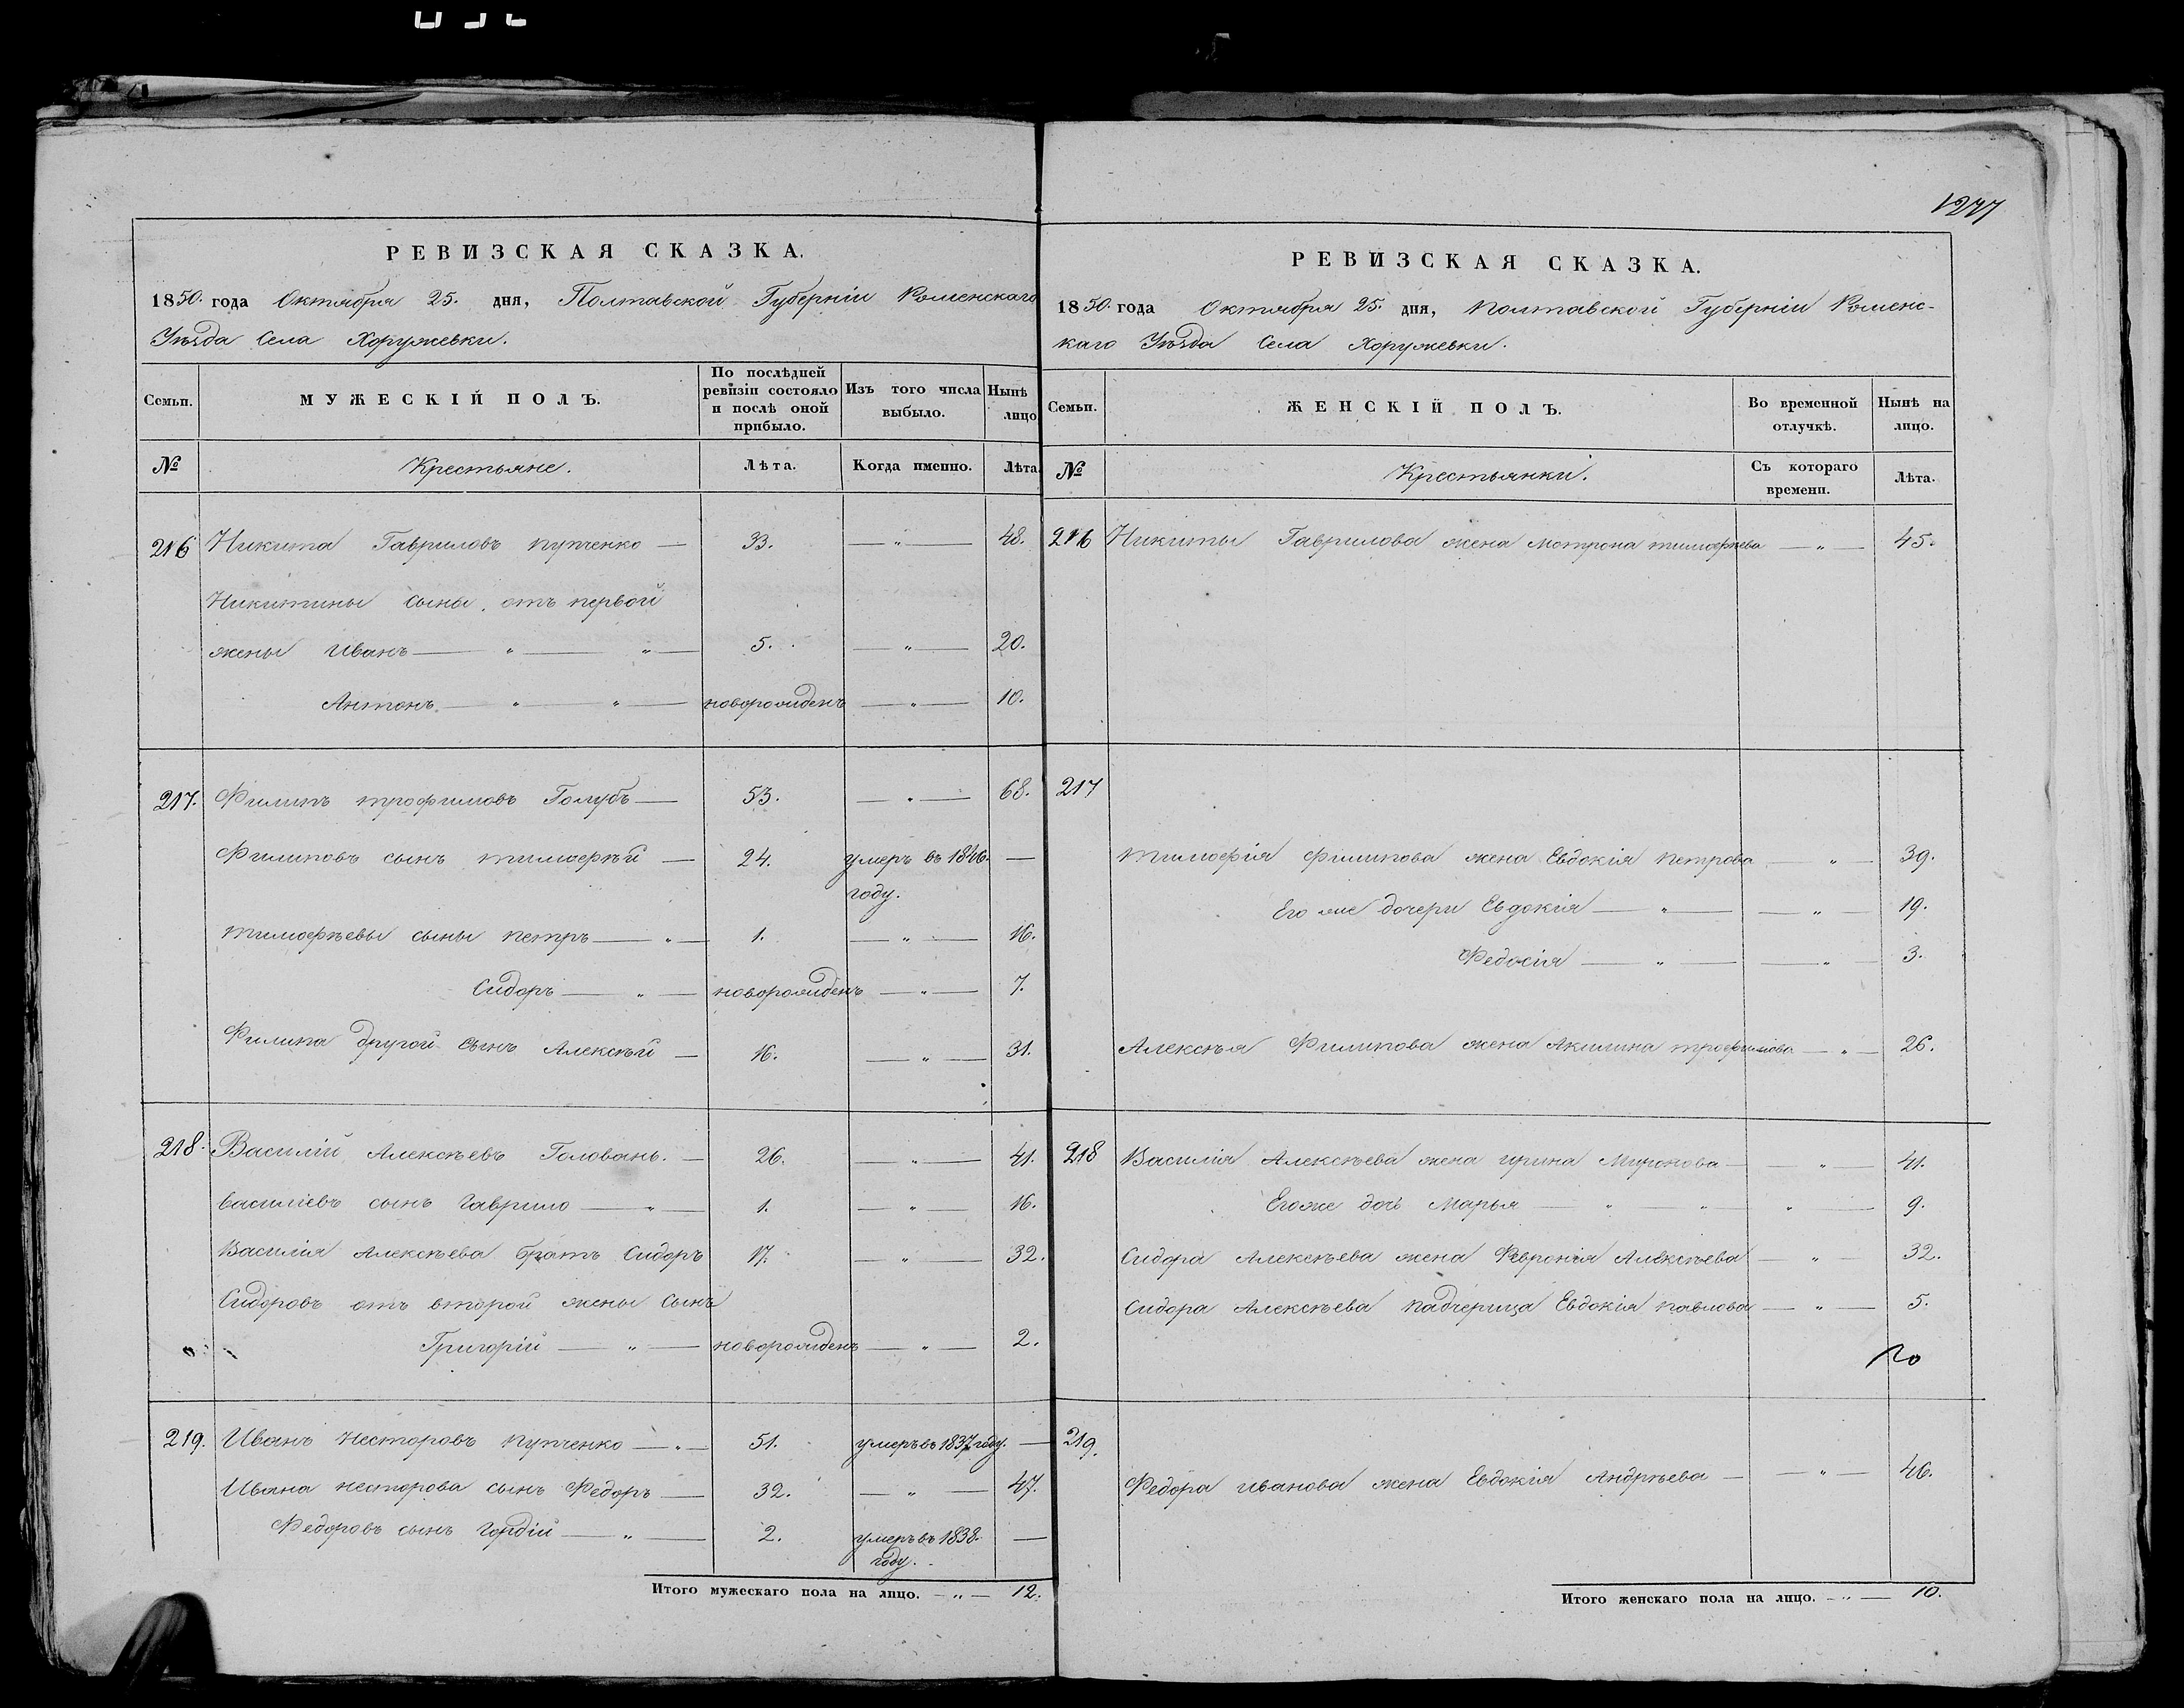 1277
РЕВИЗСКАЯ СКАЗКА.
1850. года Октября 25. дня, Полтавской Губерніи Роменскаго
Уѣзда Села Хоружевки.
Семьи.
МУЖЕСКІЙ ПОЛЪ.
По послѣдней
ревизіи состояло
и послѣ оной
прибыло.
Изъ того числа
выбыло.
Нынѣ
лицо
№
Крестьяне.
Лѣта.
Когда именно.
Лѣта.
216 Никита Гавриловъ Купченко — 33. — „ — 48.
Никитины сыны отъ первой
жены Иванъ — „ — „ — 5. — „ — 20.
Антонъ — „ — „ — новорожденъ — „ — 10.
217. Филипъ трофимовъ Голубъ — 53. — „ — 68.
Филиповъ сынъ тимофѣй — 24. умеръ въ 1846. —
году.
тимофѣевы сыны петръ — „ — 1. — „ — 16.
Сидоръ — „ — новорожденъ — „ — 7.
Филипа другой сынъ Алексѣй — 16. — „ — 31.
218. Василій Алексѣевъ Головань. — 26. — „ — 41.
василіевъ сынъ Гаврило — „ — 1. — „ — 16.
Василія Алексѣева братъ Сидоръ 17. — „ — 32.
Сидоровъ отъ второй жены сынъ
Григорій — „ — новорожденъ — „ — 2.
219. Иванъ Несторовъ Купченко — „ — 51. умеръ въ 1837 году. —
Ивана несторова сынъ Федоръ — 32. — „ — 47.
Федоровъ сынъ Гордій — „ — 2. умеръ въ 1838. —
году.
Итого мужескаго пола на лицо. — „ — 12.
РЕВИЗСКАЯ СКАЗКА.
1850. года Октября 25. дня, Полтавской Губерніи Роменс-
каго Уѣзда Села Хоружевки.
Семьи.
ЖЕНСКІЙ ПОЛЪ.
Во временной
отлучкѣ.
Нынѣ на
лицо.
№
Крестьянки.
Съ котораго
времени.
Лѣта.
216 Никиты Гаврилова жена Мотрона тимофѣева — „ — 45.
217
тимофія филипова жена Евдокія петрова — „ — 39.
Его же дочери Евдокія — „ — — „ — 19.
Федосія — „ — — „ — 3.
Алексѣя Филипова жена Акилина трофимова — „ — 26.
218 Василія Алексѣева жена ирина Миронова — — „ — 41.
Егоже дочь Марья — „ — „ — „ — 9.
Сидора Алексѣева жена Февронія Алексѣева — „ — 32.
Сидора Алексѣева падчерица Евдокія павлова — „ — 5.
219.
Федора иванова жена Евдокія Андрѣева — — „ — 46.
Итого женскаго пола на лицо. — „ — 10.